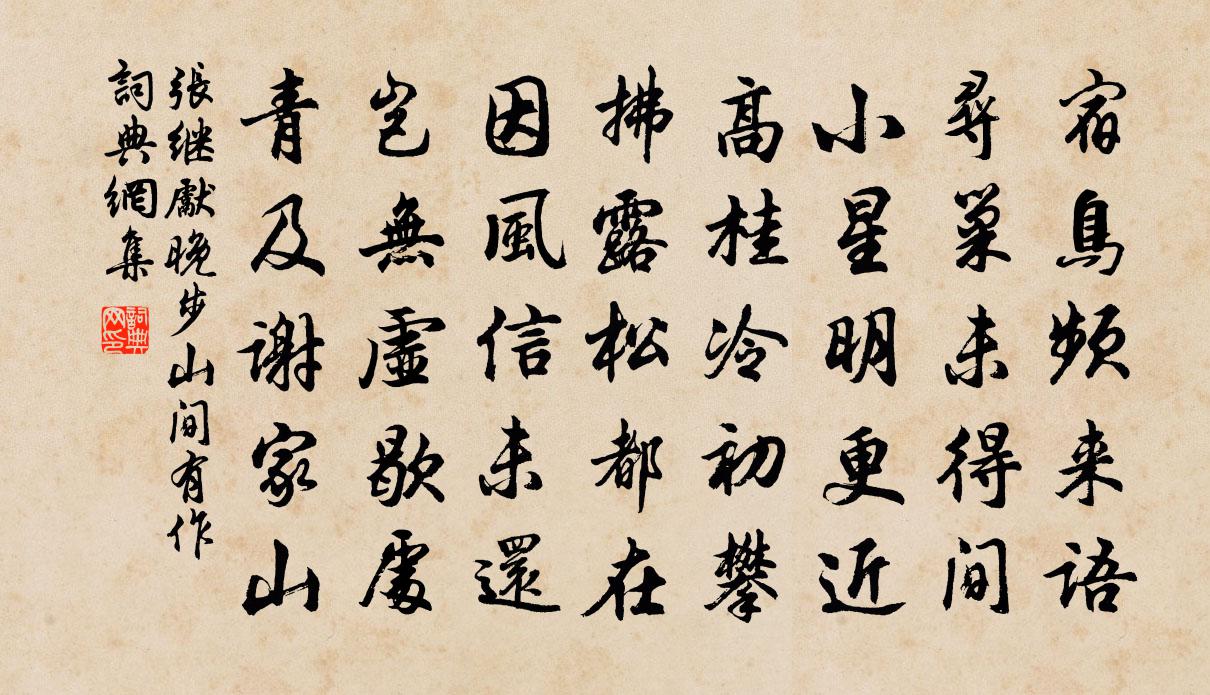 宿鳥頻来語
尋巢未得間
小星明更近
高桂冷初攀
拂露松都在
因風信未還
豈無虛歇處
青及謝家山
張継獻晚步山間有作
詞典網集
詞典网印